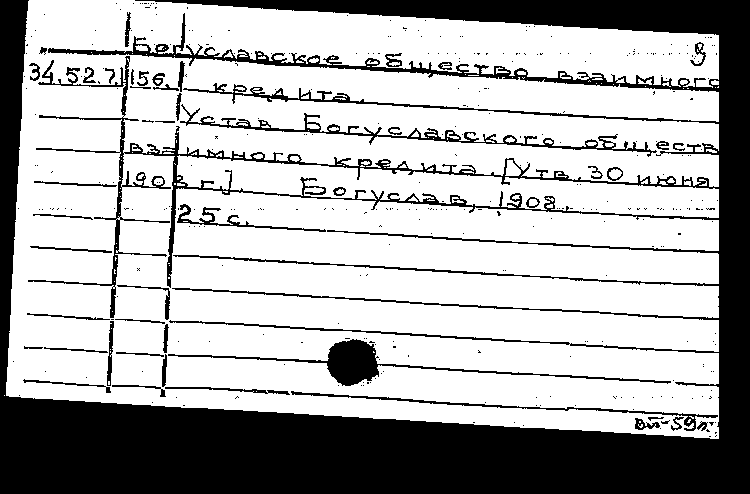 З
Богуславское общество взаимного
34.52.7.156. кредита.
Устав Богуславского обществ
взаимного кредита. [Утв. 30 июня
1908 г.]. Богуслав, 1908.
25 с.
59г.